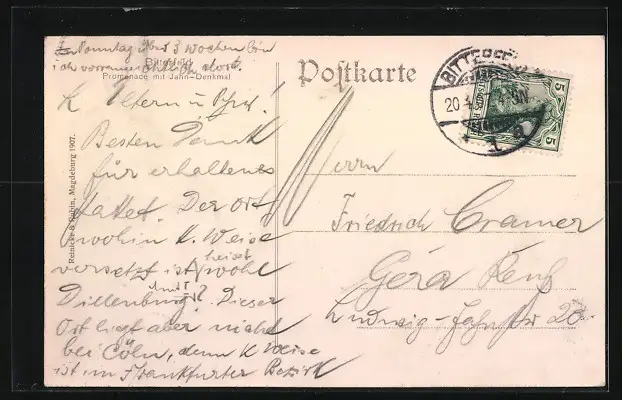 Sonntag über 3 Wochen bin
ich voraussichtlich dort.
Bitterfeld
Promenade mit Jahn-Denkmal
Postkarte
BITTERFELD
20
5
5
Reinicke & Rubin, Magdeburg 1907.
L. Eltern u.
Besten Dank
für erhaltenes
Der Ort
wohin K. Weise
versetzt ist heisst wohl
Dillenburg? Dieser
Ort liegt aber nicht
bei Cöln, denn K Weise
ist im Frankfurter Bezirk
Herrn
Friedrich Cramer
Gera Reuß
Ludwig-Jahnstr 20